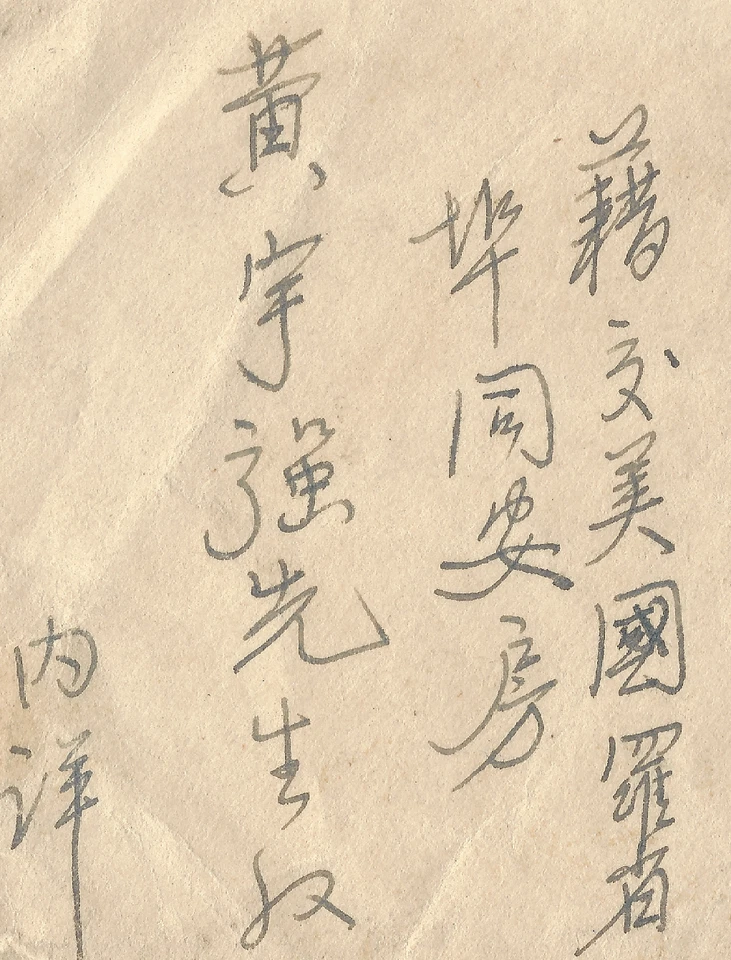 藉交美國羅省
埠同安房
黃宇强先生收
内詳